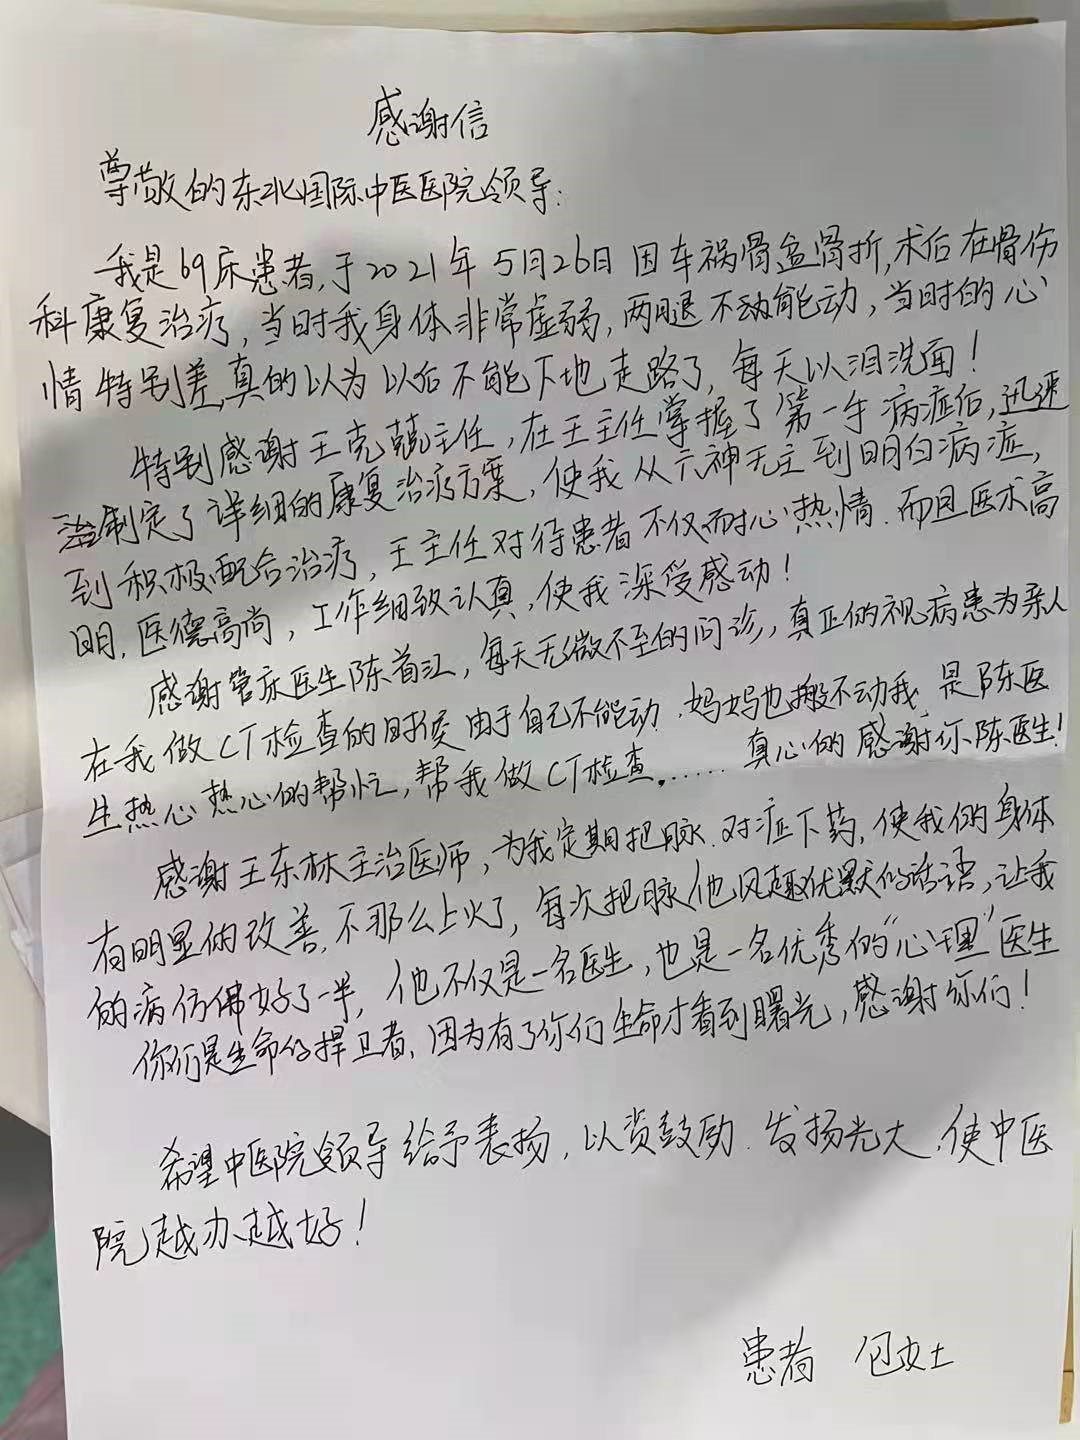 感谢信
尊敬的东北国际中医医院领导:
我是69床患者,于2021年5月26日因车祸骨盆骨折,术后在骨伤
科康复治疗,当时我身体非常虚弱,两腿不动能动,当时的心
情特别差,真的以为以后不能下地走路了,每天以泪洗面!
特别感谢王克兢主任,在王主任掌握了第一手病症后,迅速
制定了详细的康复治疗方案,使我从六神无主到明白病症,
到积极配合治疗,王主任对待患者不仅耐心热情.而且医术高
明,医德高尚,工作细致认真,使我深受感动!
感谢管床医生陈首江,每天无微不至的问诊,真正的视病患为亲人
在我做CT检查的时候由于自己不能动.妈妈也搬不动我,是陈医
生热心热心的帮忙,帮我做CT检查。……真心的感谢你陈医生!
感谢王东林主治医师,为我定期把脉.对症下药,使我的身体
有明显的改善,不那么上火了,每次把脉他风趣优默的话语,让我
的病仿佛好了一半,他不仅是一名医生,也是一名优秀的“心理”医生
你们是生命的捍卫者,因为有了你们生命才看到曙光,感谢你们!
希望中医院领导给予表扬,以资鼓励.发扬光大,使中医
院越办越好!
患者 包女士